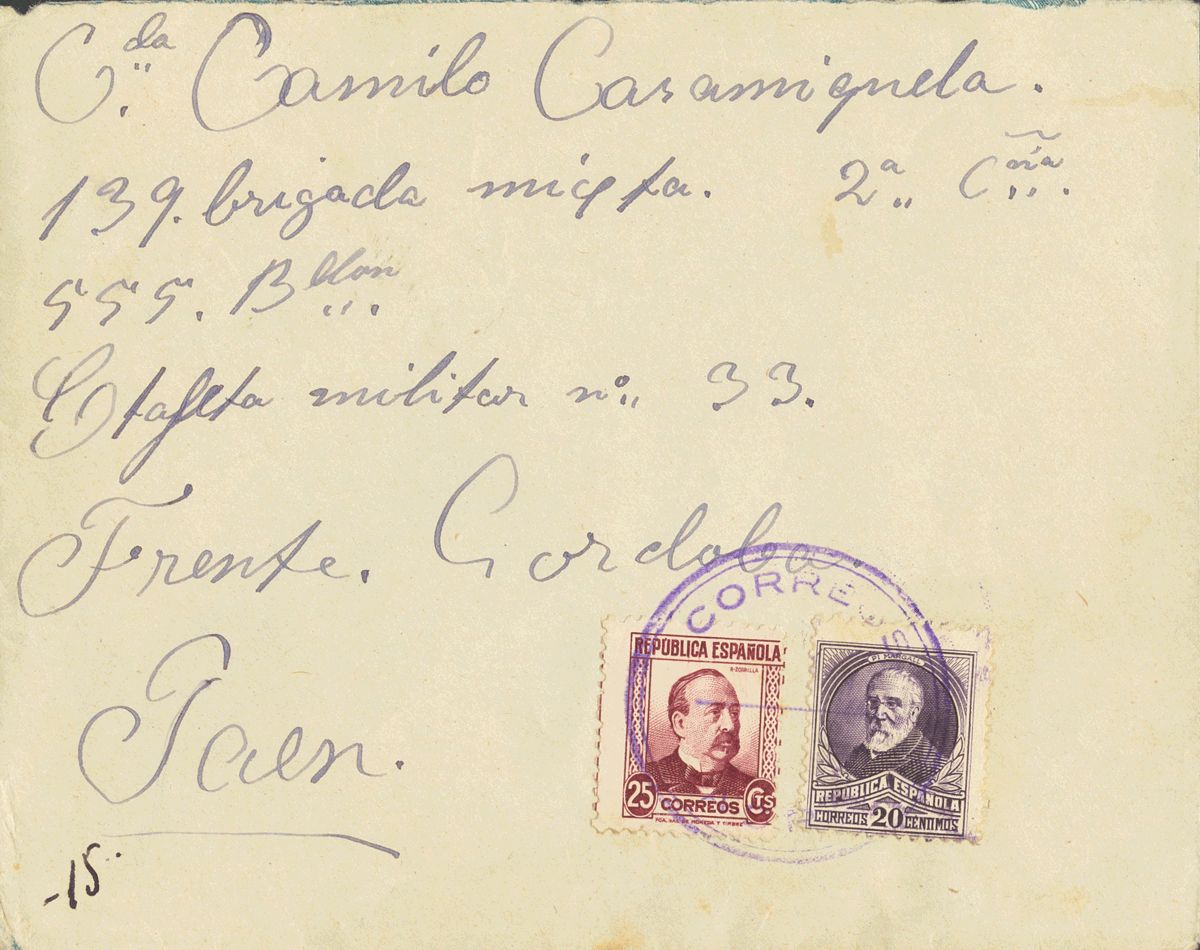 C.da Camilo Casamiquela.
139. brigada micsta. 2ª Cñia.
555. Bllon
Estafeta militar nº 33.
Frente. Cordoba.
Jaen.
-15
CORREOS
REPÚBLICA ESPAÑOLA
R-ZORRILLA
25 CORREOS CTS
PI MARGALL
REPÚBLICA ESPAÑOLA
CORREOS 20 CÉNTIMOS